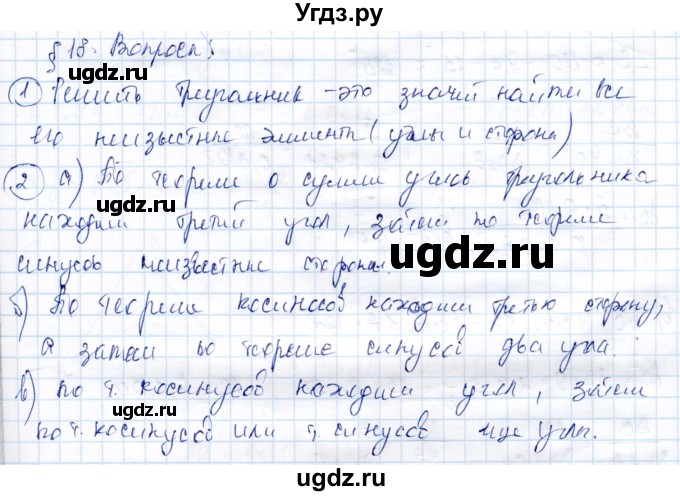 Угдз.ру
§ 18. Вопросы:
ugdz.ru
ugdz.ru
1 Решить треугольник - это значит найти все
его неизвестные элементы (углы и стороны)
ugdz.ru
2 а) По теореме о сумме углов треугольника
находим третий угол, затем по теореме
ugdz.ru
синусов неизвестные стороны.
ugdz.ru
б) По теореме косинусов находим третью сторону,
а затем по теореме синусов два угла.
ugdz.ru
ugdz.ru
в) по т. косинусов находим угол, затем
по т. косинусов или т. синусов еще углы.
ugdz.ru
ugdz.ru